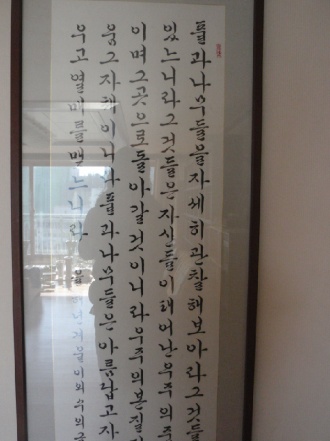 풀과나무들을자세히관찰해보아라그것들
있느니라그것들은자신들이태어난우주의주
이며그곳으로돌아갈것이니라우주의본질
웅그자체이니라풀과나무들은아름답고자
우고열매를맺느니라